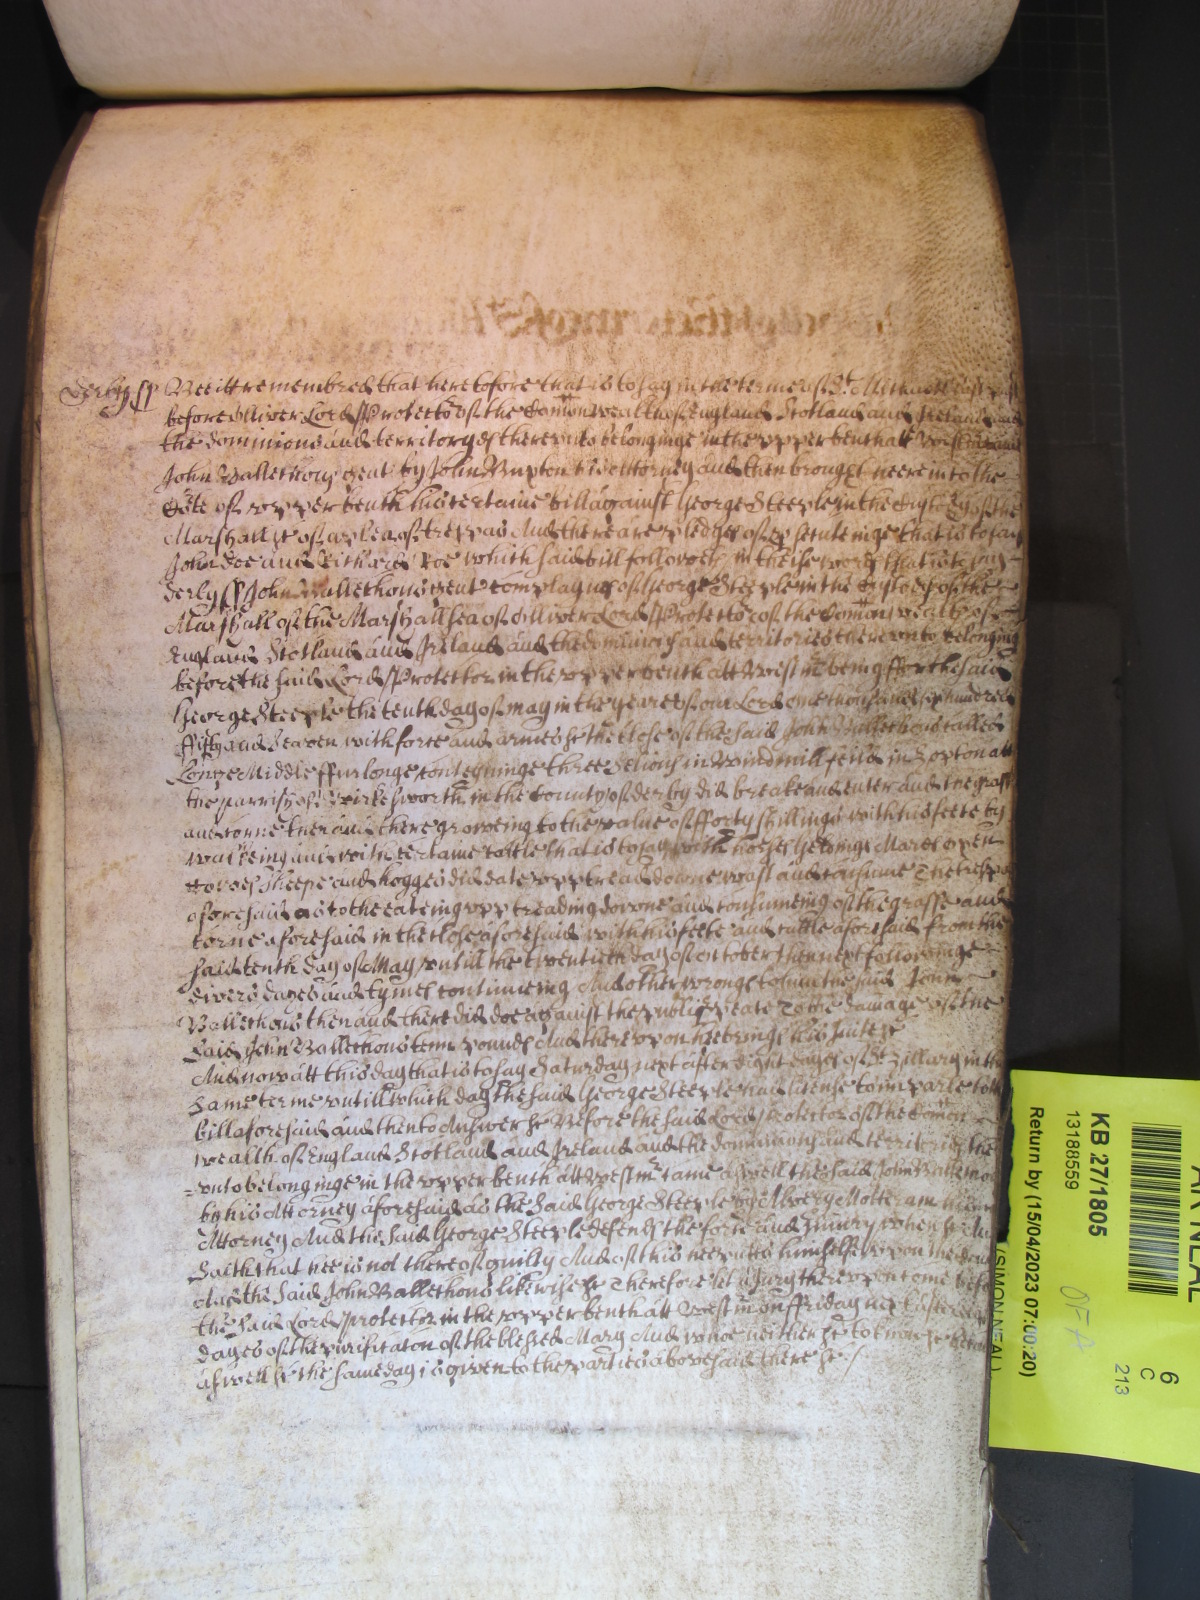 derby ss Bee itt remembred that heretofore that is to say in the terme of St. Michaell last past
before Olliver Lord Protector of the Comon wealth of England Scotland and Ireland and
the dominions and territoryes thereunto belonginge in the upper bench att Westm came
John Ballethous gent by John Buxton his attorney and then brought heere into the
Co~te of upper bench his certaine bill against George Steeple in the Custody of the
Marshall &c of a plea of trespas And there are pledges of p~secuteinge that is to say
John doe and Richard Roe which said bill followeth in these words that is to say
derby ss John Ballethous gent complaynes of George Steeple in the Custody of the
Marshall of the Marshallsea of Olliver Lord Protector of the Comon wealth of
England Scotland and Ireland and the dominions and territories thereunto belonging
before the said Lord Protector in the upper bench att Westmr being ffor the said
George Steeple the tenth day of may in the yeare of our Lord one thousand six hundred
ffifty and Seaven with force and armes &c the close of the said John Ballethous called
Longe Middle ffurlonge conteyninge three Selions in Windmill feild in Hopton att
the parrish of Wirkesworth in the County of derby did breake and enter and the grass
and corne then and there groweing to the value of fforty shillings with his feete by
walkeing and with certaine cattle that is to say with horses geldings Mares oxen
cowes sheepe and hogges did eate upp tread downe wast and consume The trespas
aforesaid as to the eateing upp treading downe and consumeing of the grasse and
corne aforesaid in the close aforesaid with his feete and cattle aforesaid from the
said tenth day of May untill the twentieth day of october then next followinge
divers dayes and tymes continueing And other wrongs to him the said John
Ballethous then and there did doe against the publiq peace To the damage of the
said John Ballethous tenn pounds And thereupon hee brings his suite &c
And now att this day that is to say Saturday next after eight dayes of St. Hillary in this
same terme untill which day the said George Steeple had license to imparle to the
bill aforesaid and then to Answer &c Before the said Lord Protector of the Comon
wealth of England Scotland and Ireland and the dominions and territories there
=unto belonginge in the upper bench att Westmr came aswell the said John Ballethous
by his Attorney aforesaid as the said George Steeple by Molteram his
Attorney And the said George Steeple defends the force and Iniury when &c And
Saith that hee is not thereof guilty And of this hee putts himselfe upon the Country
And the said John Ballethous likewise &c Therefore let a Jury thereupon come before
the said Lord Protector in the upper bench att Westm on ffriday next after
dayes of the purificaton of the blessed Mary And whoe neither &c to know &c because
aswell &c the same day is given to the parties abovesaid there &c ./.
KB 27/1805
13188559
Return by (15/04/2023 07:00:20)
(SIMON NEAL)
6
C
213